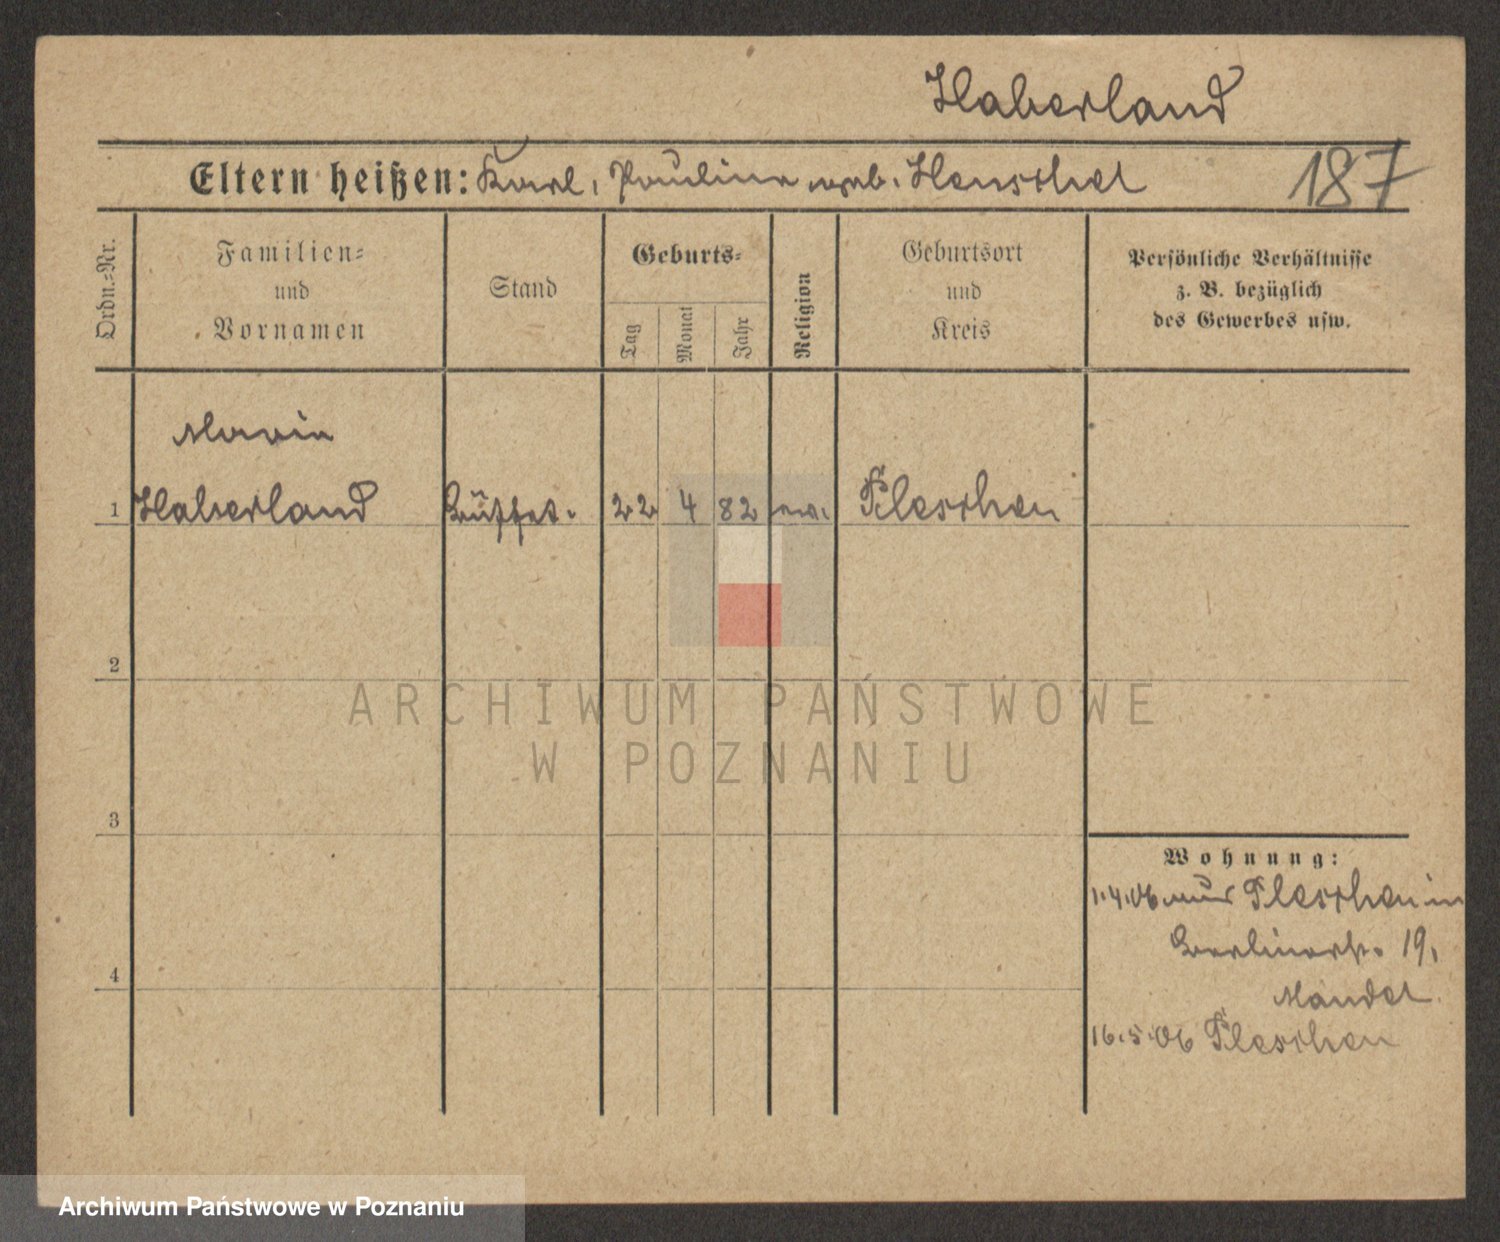 Haberland
Eltern heißen: Karl, Paulina geb. Henschel 187
Ordn.-Nr.
Familien- und Vornamen
Stand
Geburts-
Tag
Monat
Jahr
Religion
Geburtsort und Kreis
Persönliche Verhältnisse
z. B. bezüglich
des Gewerbes usw.
Maria
1 Haberland Büffet. 22 4 82 ev. Pleschen
2
3
4
Wohnung:
1.4.06 aus Pleschen in
Berlinerstr. 19,
Mandel.
16.5.06 Pleschen
ARCHIWUM PAŃSTWOWE
W POZNANIU
Archiwum Państwowe w Poznaniu